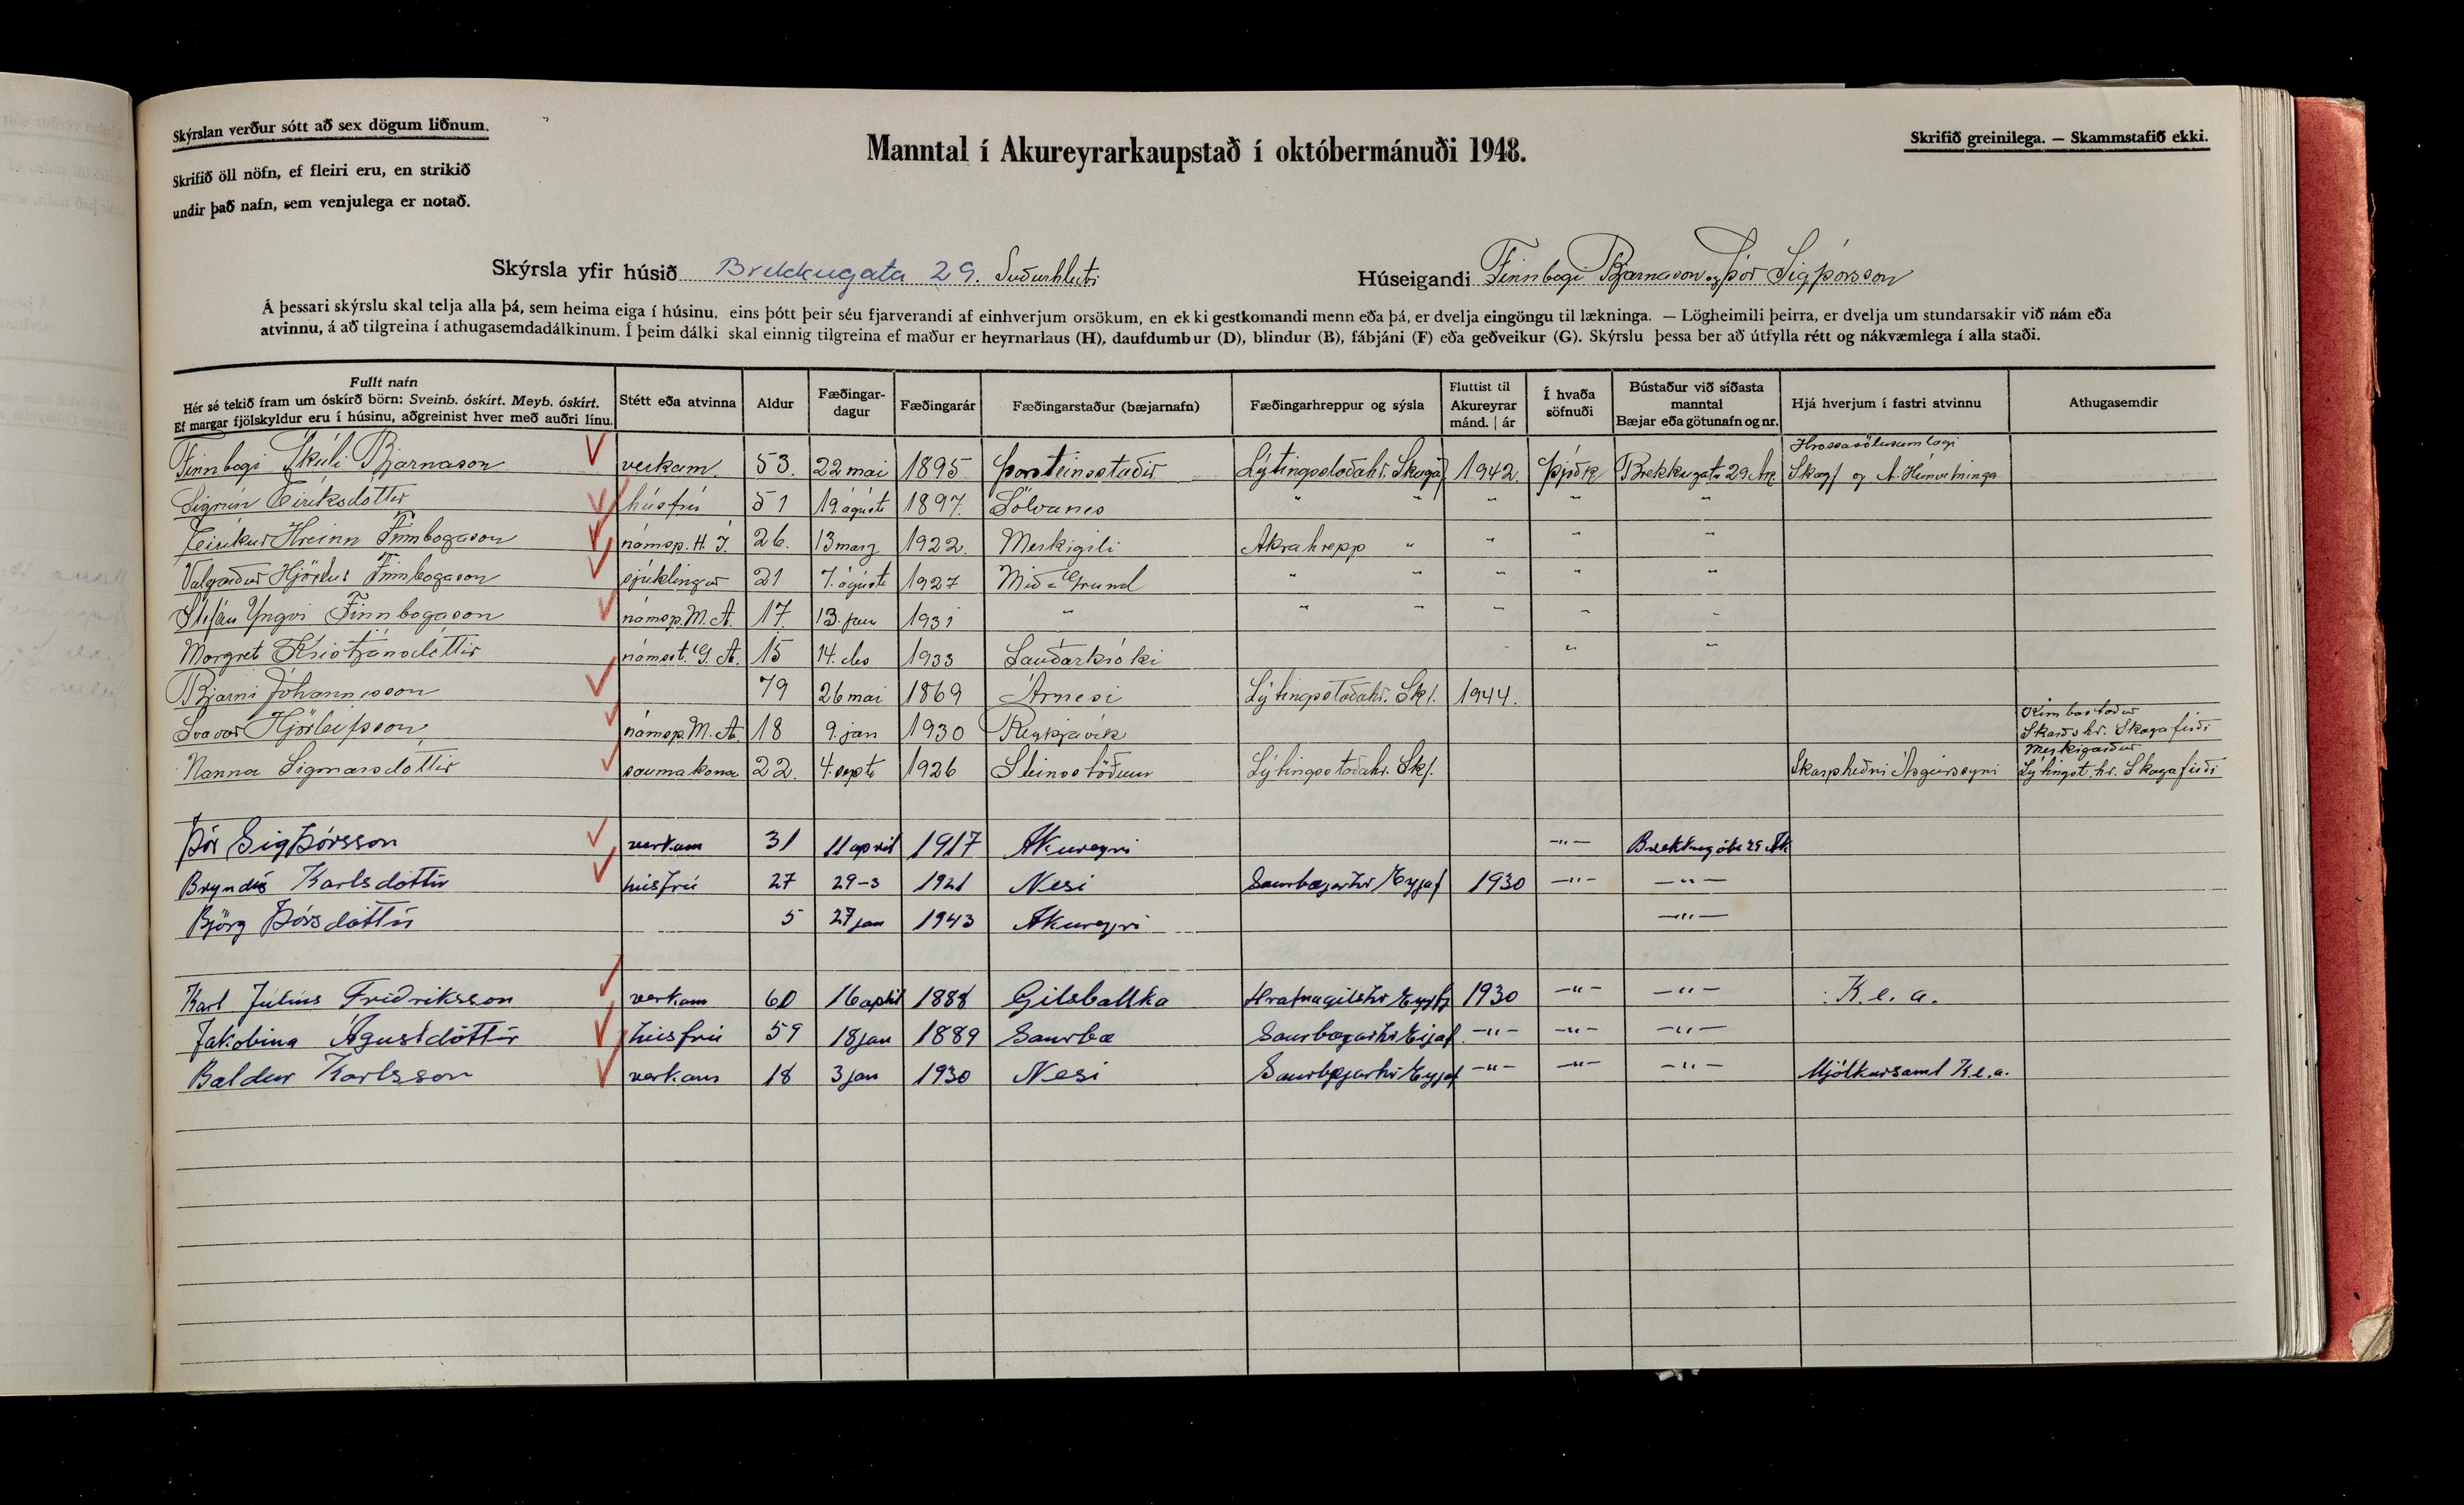 Skýrslan verður sótt að sex dögum liðnum.
Skrifið öll nöfn, ef fleiri eru, en strikið
undir það nafn, sem venjulega er notað.
Manntal í Akureyrarkaupstað í októbermánuði 1948.
Skrifið greinilega. — Skammstafið ekki.
Skýrsla yfir húsið Brekkugata 29. Suðurhluti
Húseigandi Finnbogi Bjarnason og Þór Sigþórsson
Á þessari skýrslu skal telja alla þá, sem heima eiga í húsinu, eins þótt þeir séu fjarverandi af einhverjum orsökum, en ekki gestkomandi menn eða þá, er dvelja eingöngu til lækninga. — Lögheimili þeirra, er dvelja um stundarsakir við nám eða
atvinnu, á að tilgreina í athugasemdadálkinum. Í þeim dálki skal einnig tilgreina ef maður er heyrnarlaus (H), daufdumbur (D), blindur (B), fábjáni (F) eða geðveikur (G). Skýrslu þessa ber að útfylla rétt og nákvæmlega í alla staði.
Fullt nafn
Hér sé tekið fram um óskírð börn: Sveinb. óskírt. Meyb. óskírt.
Ef margar fjölskyldur eru í húsinu, aðgreinist hver með auðri línu.
Stétt eða atvinna
Aldur
Fæðingar-
dagur
Fæðingarár
Fæðingarstaður (bæjarnafn)
Fæðingarhreppur og sýsla
Fluttist til
Akureyrar
mánd. | ár
Í hvaða
söfnuði
Bústaður við síðasta
manntal
Bæjar eða götunafn og nr.
Hjá hverjum í fastri atvinnu
Athugasemdir
Hrossasölusamlagi
Finnbogi Skúli Bjarnason verkam. 53. 22 mai 1895 Þorsteinsstaðir Lýtingsstaðahr. Skagaf 1942. Þjóðk Brekkugata 29 Ak Skagf og A. Húnvetninga
Sigrún Eiríksdóttir húsfrú 51 19. ágúst 1897. Sölvanes " " " " "
Eiríkur Hreinn Finnbogason námsp. H. Í. 26. 13 marz 1922. Merkigili Akrahrepp " " " "
Valgarður Hjörtur Finnbogason sjúklingur 21 7. ágúst 1927 Mið-Grund " " " " "
Stefán Yngvi Finnbogason námsp. M. A. 17. 13. jan 1931 " " " " " "
Margret Kristjánsdóttir námsst. G. A. 15 14. des 1933 Sauðárkróki " " "
Bjarni Jóhannesson 79 26 mai 1869 Árnesi Lýtingsstaðahr. Skf. 1944.
Kimbastaðir
Svavar Hjörleifsson námsp. M. A. 18 9. jan 1930 Reykjavík Skarðshr. Skagafirði
Merkigarður
Nanna Sigmarsdóttir saumakona 22. 4. sept 1926 Steinsstöðum Lýtingsstaðahr. Skf. Skarphéðni Ásgeirssyni Lýtingst. hr. Skagafirði
Þór Sigþórsson verkam 31 11 apríl 1917 Akureyri —"— Brekkugötu 29 Ak
Bryndís Karlsdóttir húsfrú 27 29-3 1921 Nesi Saurbæjarhr Eyjaf 1930 —"— —"—
Björg Þórsdóttir 5 27 jan 1943 Akureyri —"—
Karl Júlíus Friðriksson verkam 60 16 apríl 1888 Gilsbakka Hrafnagilshr Eyjafj 1930 —"— —"— K. e. a.
Jakobina Ágústdóttir húsfrú 59 18 jan 1889 Saurbæ Saurbæjarhr Eijaf —"— —"— —"—
Baldur Karlsson verkam 18 3 jan 1930 Nesi Saurbæjarhr Eyjaf —"— —"— —"— Mjólkursaml K.e.a.